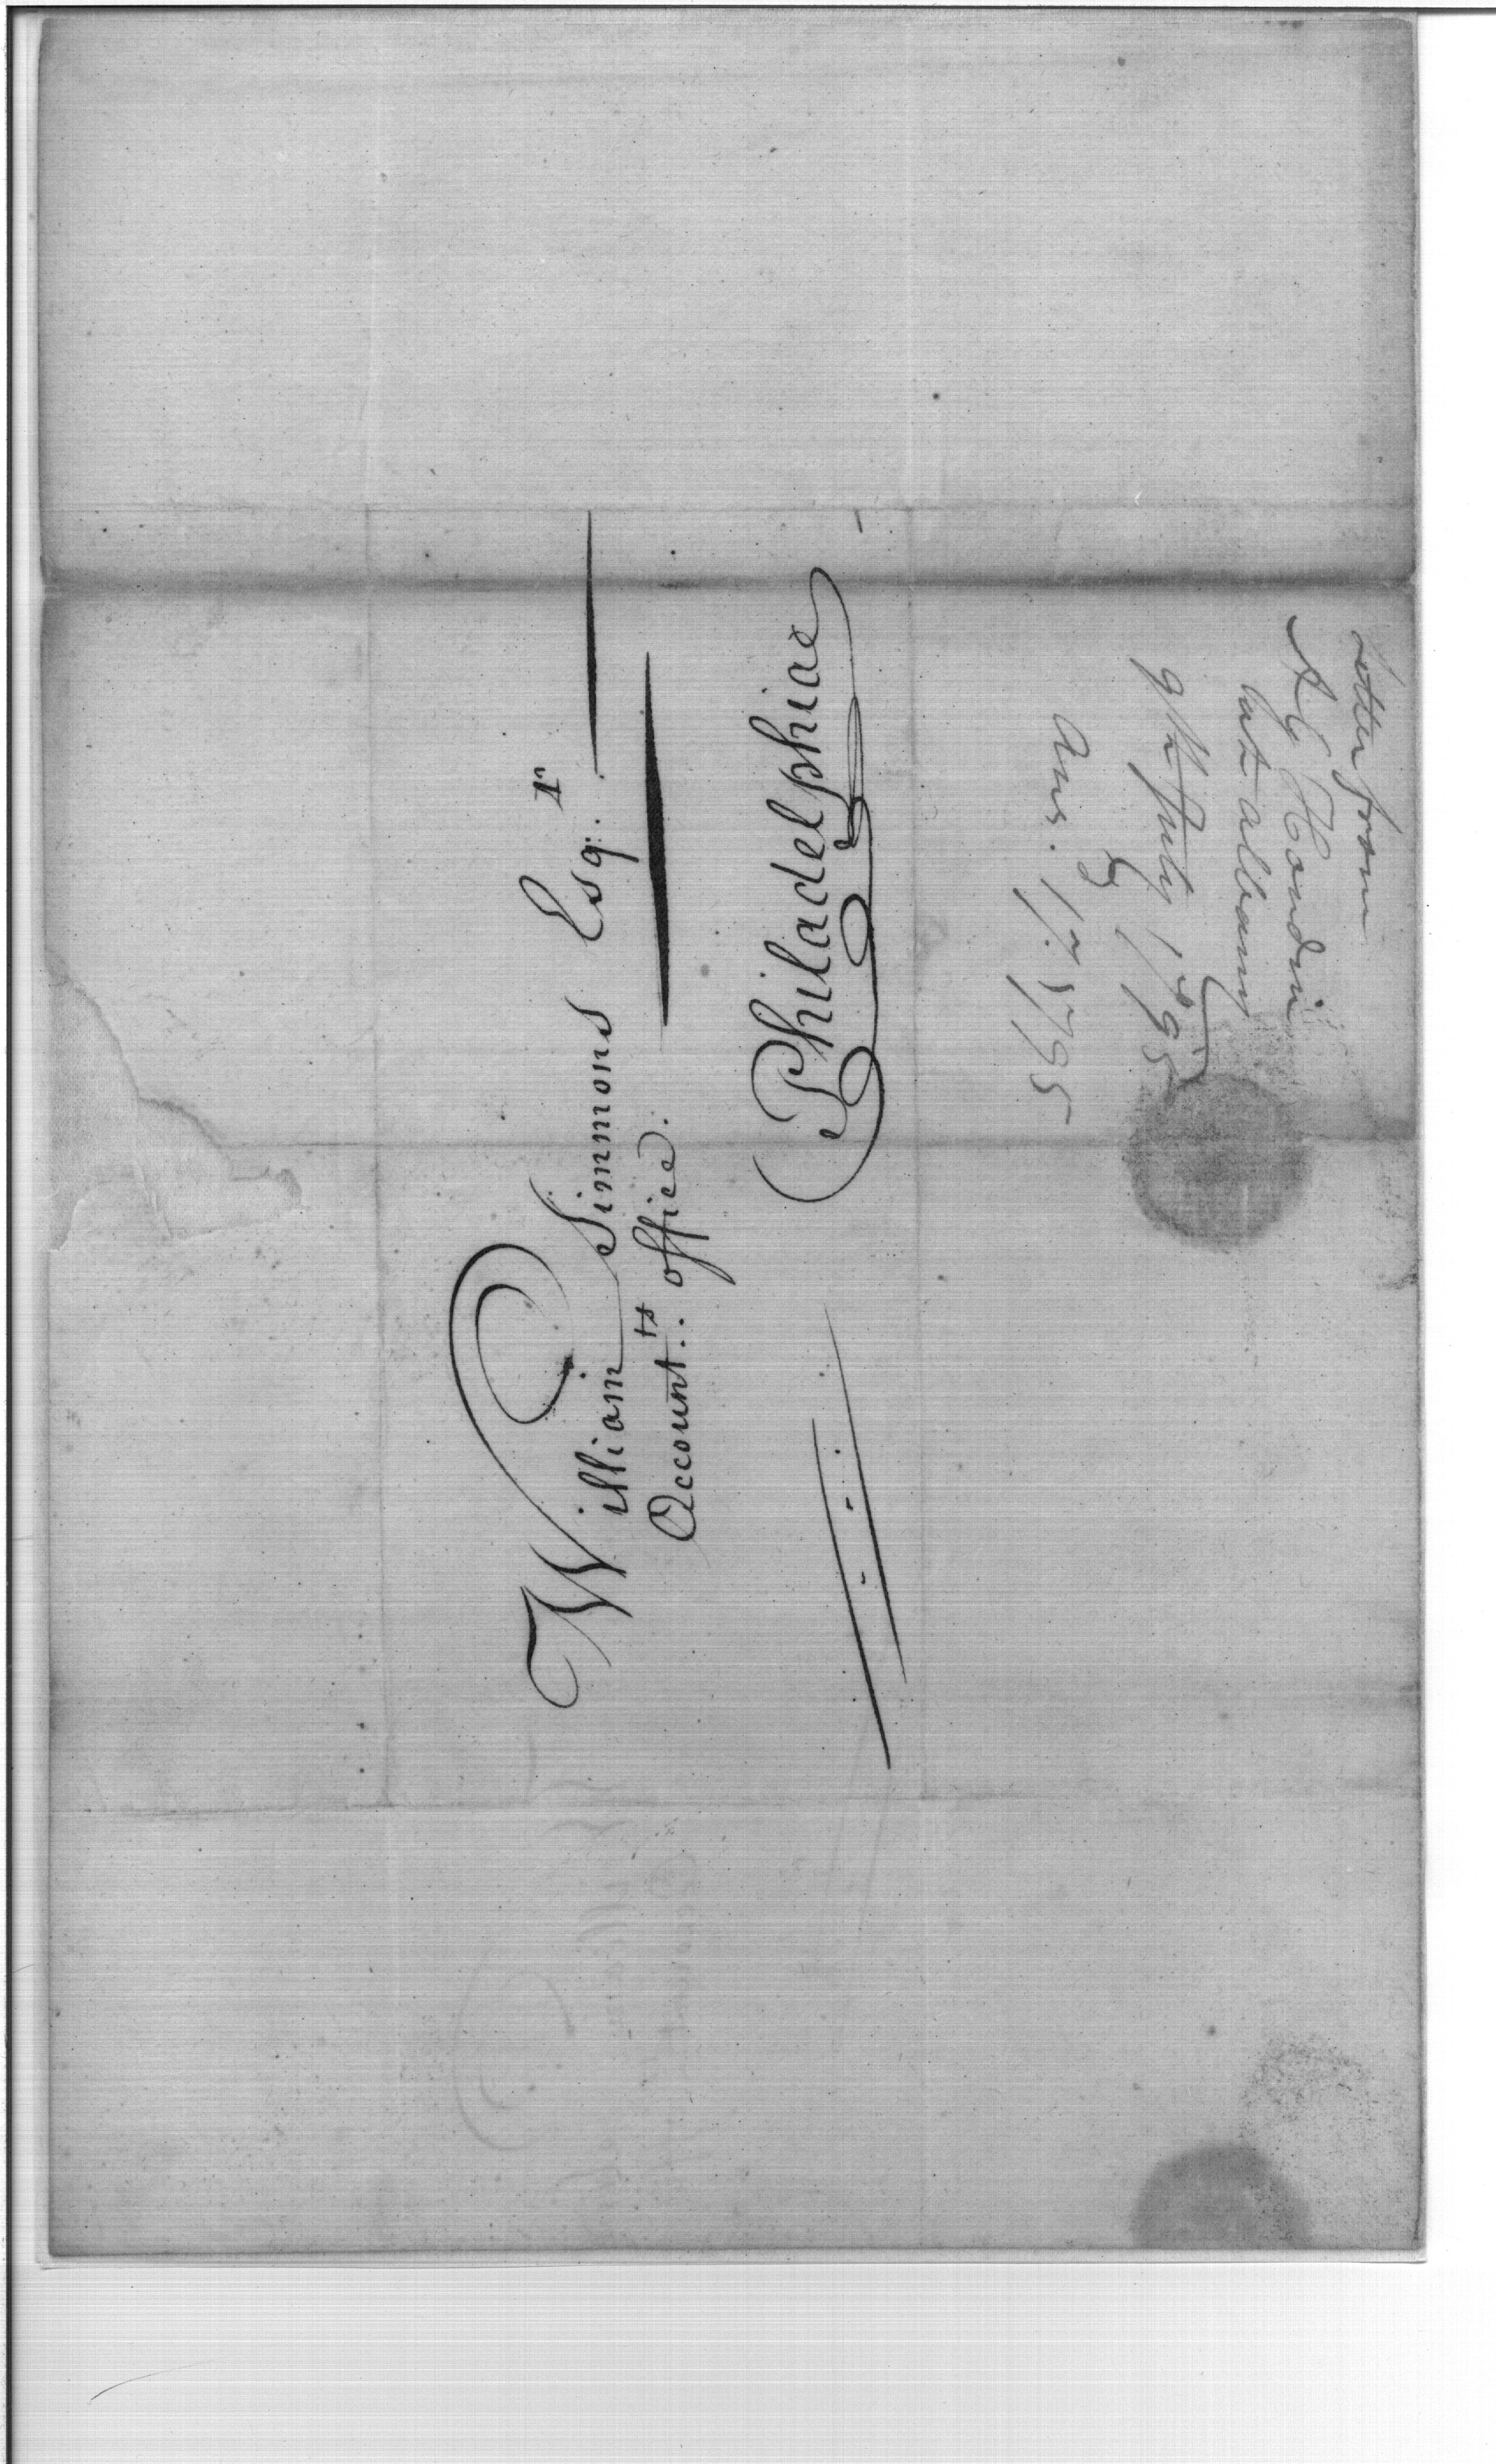 William Simmons Esqr.
Accountts. office.
Philadelphiae
Letter from
A G Houdin
Capt albany
9th July 1795
Ans. 17. 1795